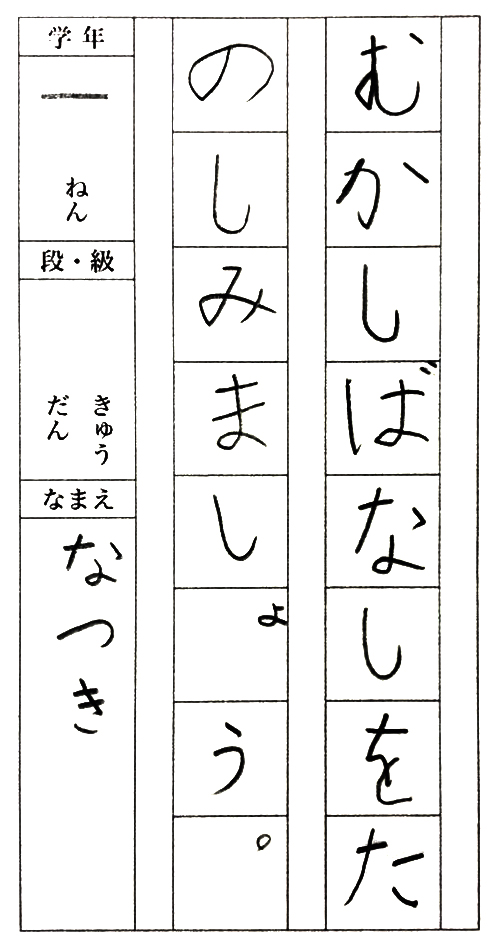 むかしばなしをた
のしみましょう。
学年
一
ねん
段・級
きゅう
だん
なまえ
なつき